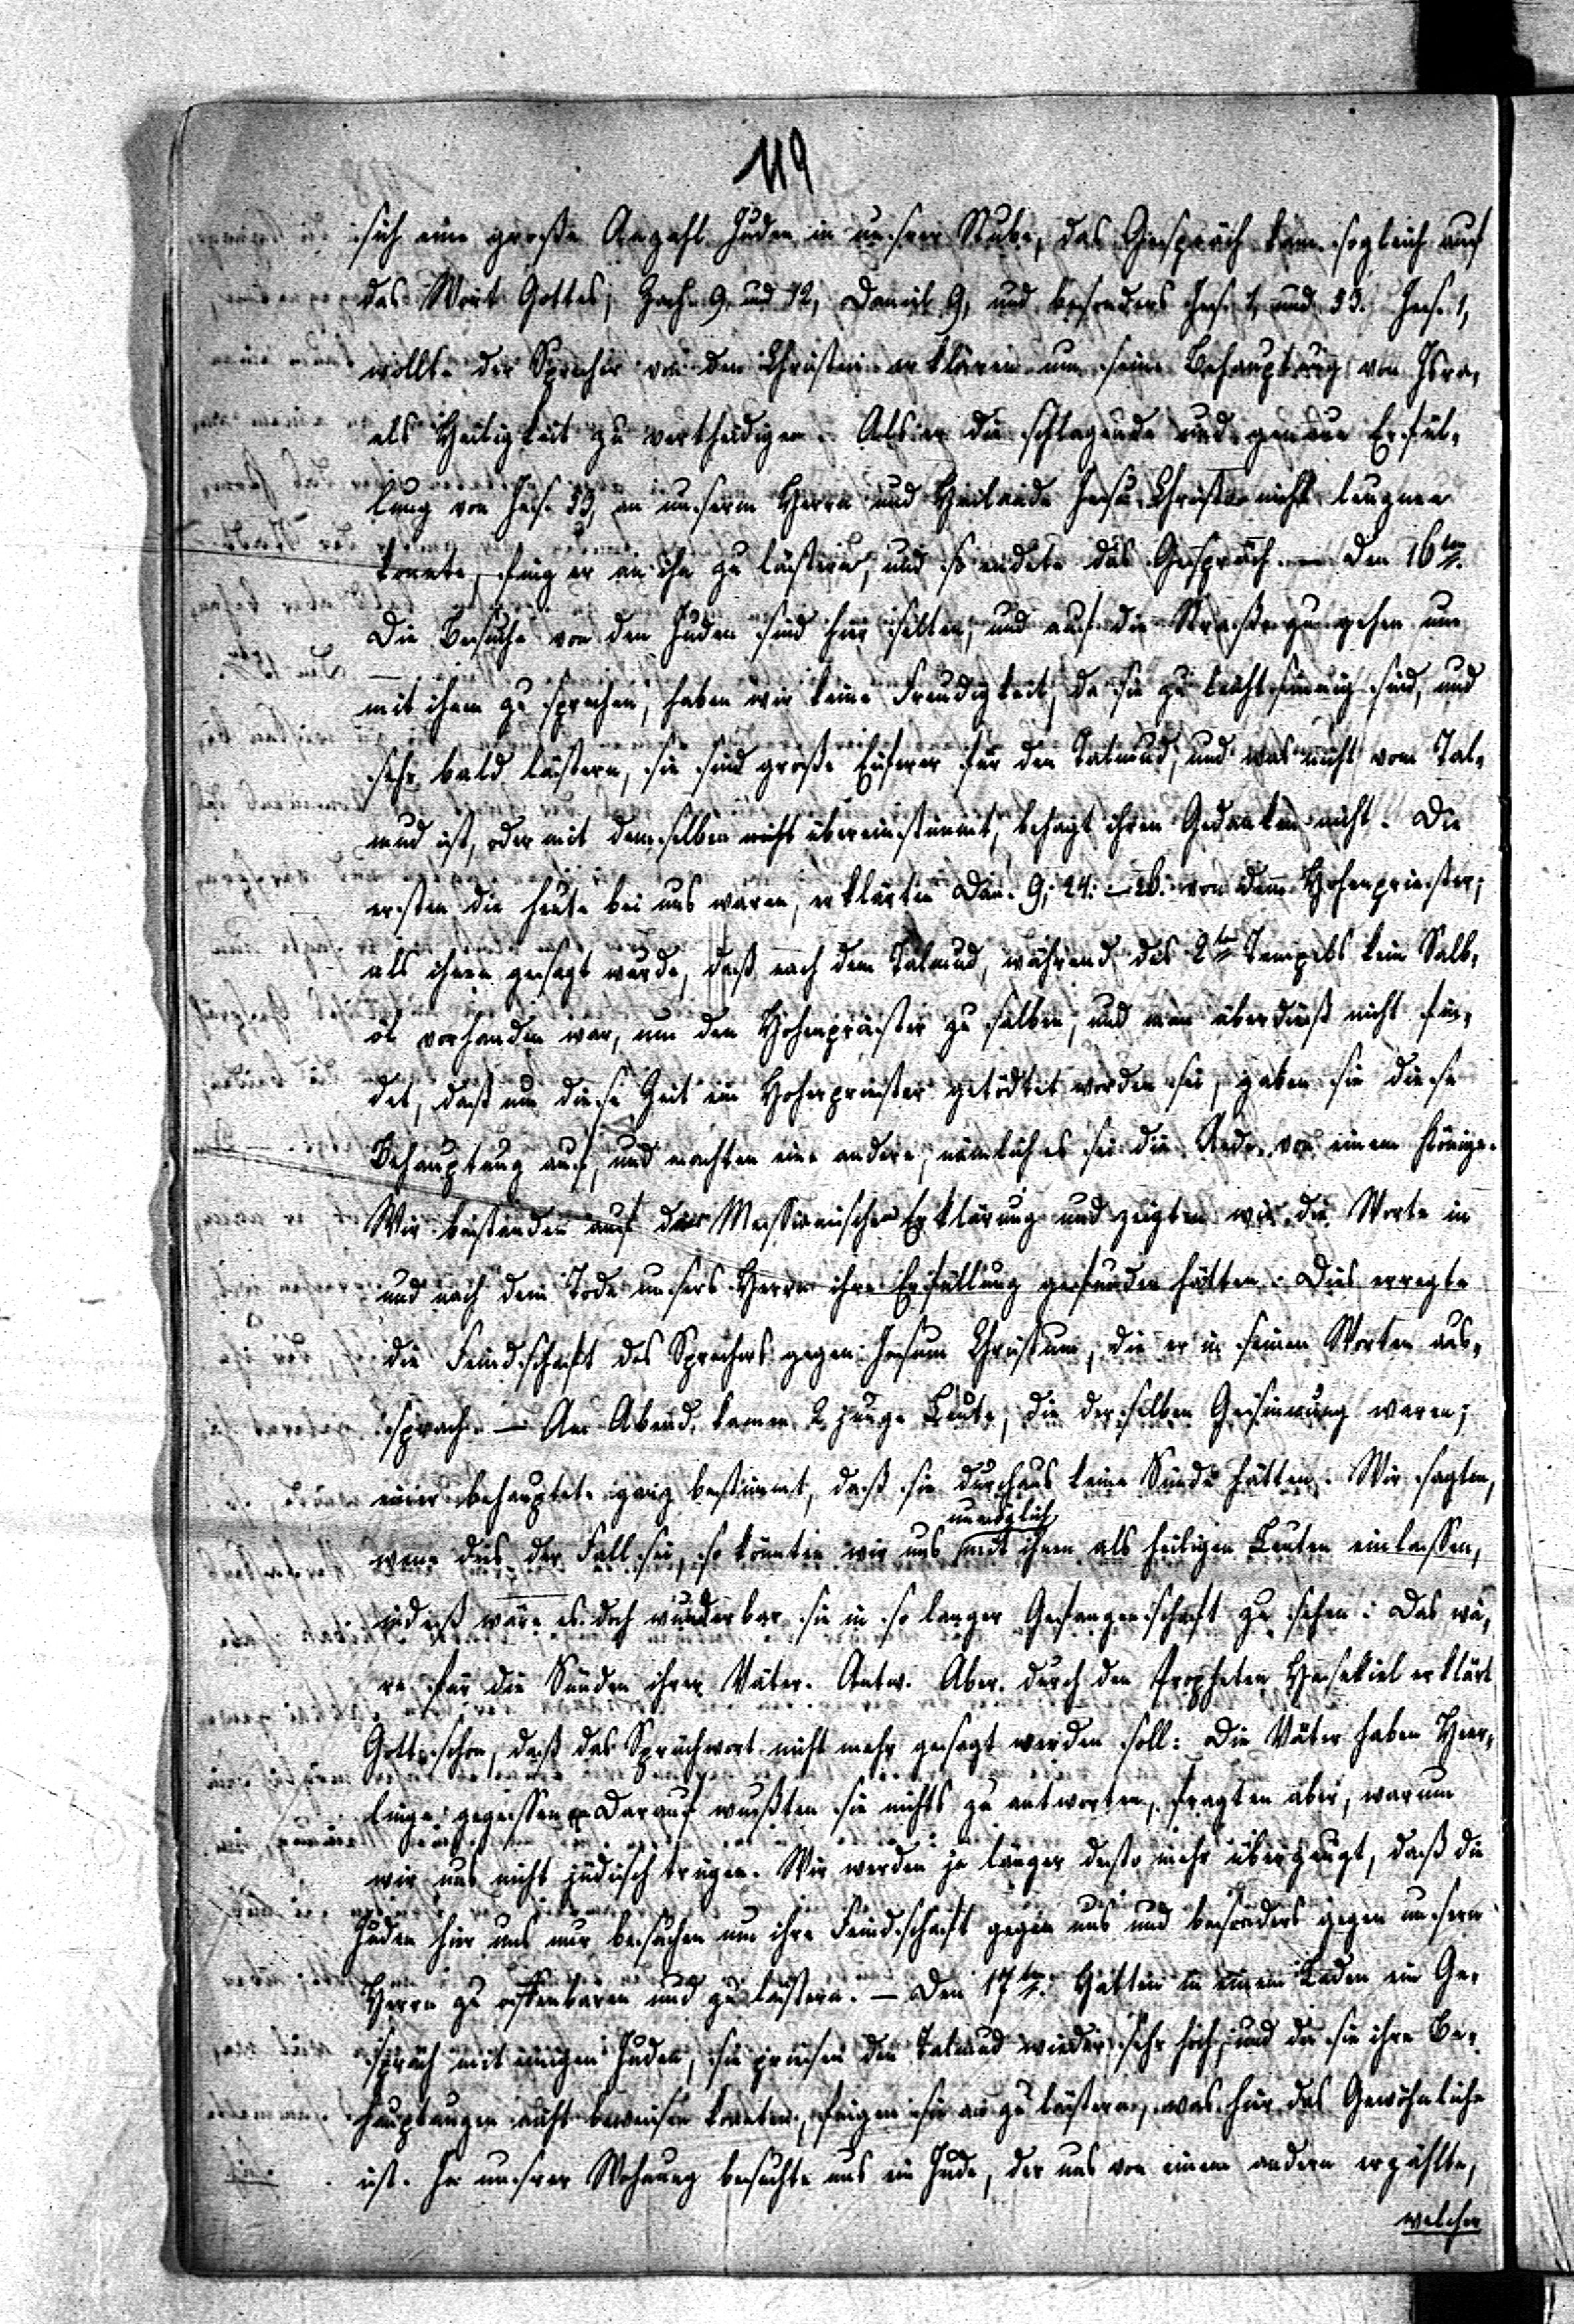 119
sich eine große Anzahl Juden in unsrer Stube, das Gespräch kam sogleich auf
das Wort Gottes, Zach. 9. und 12, Daniel 9, und besonders Jes. 1, und 53. Jes. 1,
wollte der Sprecher von den Christen erklären um seine Behauptung von Isra-
els Heiligkeit zu vertheidigen. Als er die schlagende und genaue Erfül-
lung von Jes. 53, an unserm Herrn und Heilande Jesu Christo nicht leugnen
konnte, fing er an ihn zu lästern, und so endete das Gespräch. — Den 16ten.
Die Besuche von den Juden sind hier selten, und auf die Straße zu gehen um
mit ihnen zu sprechen, haben wir keine Freudigkeit, da sie zu leichtsinnig sind, und
sehr bald lästern, sie sind große Eiferer für den Talmud, und was nicht vom Tal-
mud ist, oder mit demselben nicht übereinstimmt, behagt ihren Gedanken nicht. Die
ersten die heute bei uns waren, erklärten Dan. 9, 24. – 26. von dem Hohenpriester,
als ihnen gesagt wurde, daß nach dem Talmud, während des 2ten Tempels kein Salb-
öl vorhanden war, um den Hohenpriester zu salben, und man überdieß nicht fin-
det, daß um diese Zeit ein Hoherpriester getödtet worden sei, gaben sie diese
Behauptung auf, und machten eine andere, nämlich es sei die Rede von einem Könige.
Wir bestanden auf der Messianischen Erklärung und zeigten wie die Worte in
und nach dem Tode unsers Herrn ihre Erfüllung gefunden hätten. Dies erregte
die Feindschaft des Sprechers gegen Jesum Christum, die er in seinen Worten aus-
sprach. — Am Abend kamen 2 junge Leute, die derselben Gesinnung waren;
einer behauptete ganz bestimmt, daß sie durchaus keine Sünde hätten. Wir sagten,
wenn dies der Fall sei, so könnten wir uns unmöglich mit ihnen als heiligen Leuten einlassen,
indeß wäre es doch wunderbar sie in so langer Gefangenschaft zu sehen: Das wä-
re für die Sünden ihrer Väter. Antw. Aber durch den Propheten Hesekiel erklärt
Gott schon, daß das Sprüchwort nicht mehr gesagt werden soll: Die Väter haben Heer-
linge gegessen. Darauf wußten sie nichts zu antworten, fragten aber, warum
wir uns nicht jüdisch trügen. Wir werden je länger desto mehr überzeugt, daß die
Juden hier uns nur besuchen um ihre Feindschaft gegen uns und besonders gegen unsern
Herrn zu offenbaren und zu lästern. — Den 17ten. Hatten in einem Laden ein Ge-
spräch mit einigen Juden, sie priesen den Talmud wieder sehr hoch, und da sie ihre Be-
hauptungen nicht beweisen konnten, fingen sie an zu lästern, was hier das Gewöhnliche
ist. In unsrer Wohnung besuchte uns ein Jude, der uns von einem andern erzählte,
welcher